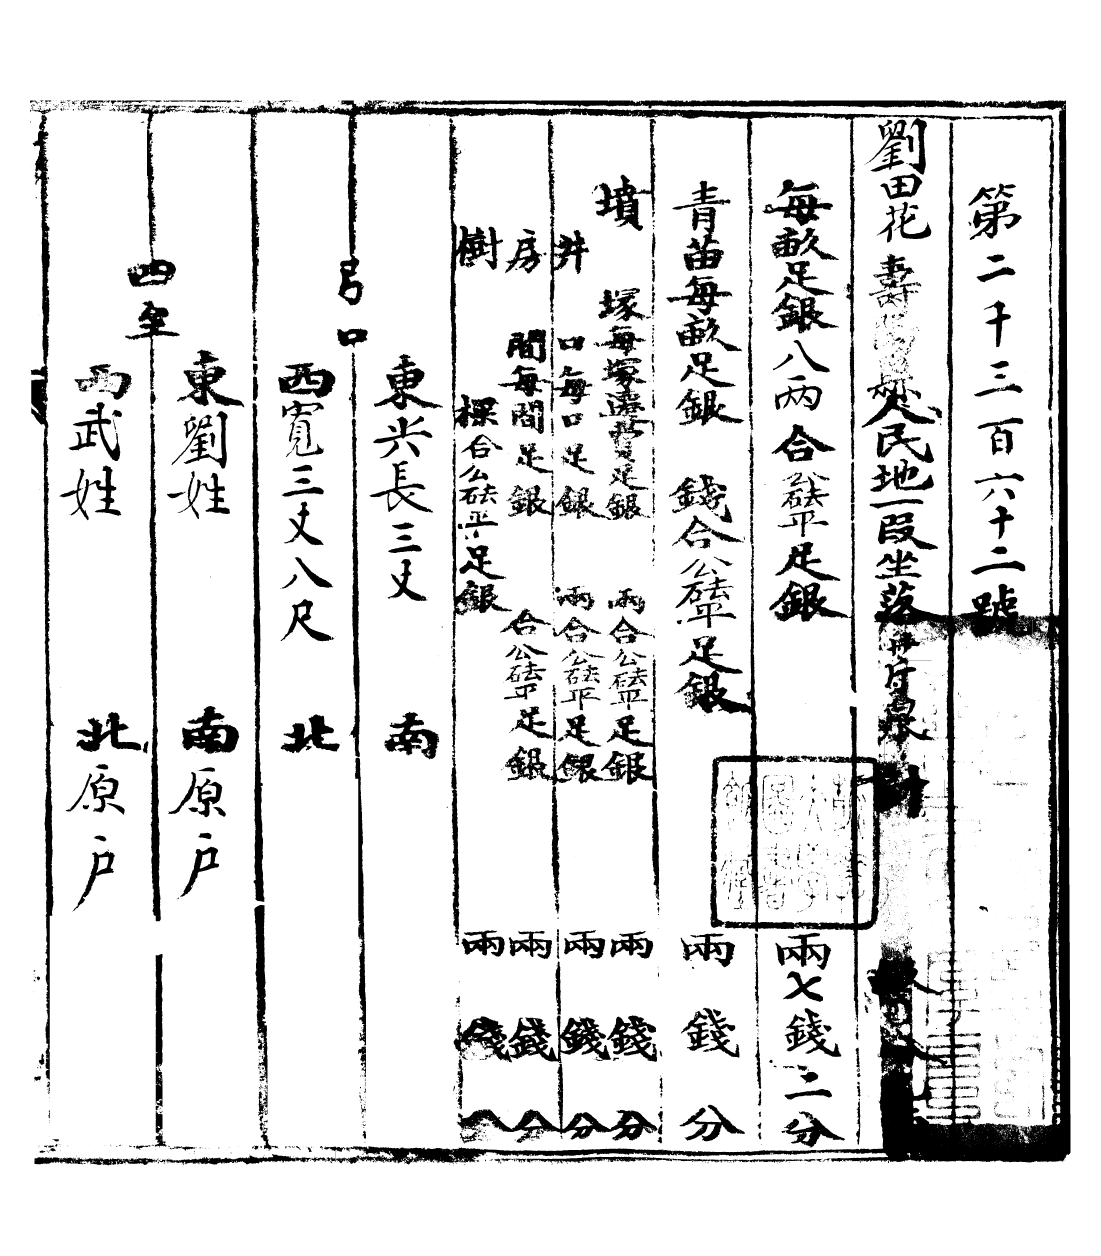 第二千三百六十二號
劉田花壽 人民地一段坐落
每畝足銀八兩合公砝平足銀 兩七錢二分
青苗每畝足銀 錢合公砝平足銀 兩 錢 分
墳 塚每塚遷費足銀 兩合公砝平足銀 兩 錢 分
井 口每口足銀 兩合公砝平足銀 兩 錢 分
房 間每間足銀 合公砝平足銀 兩 錢 分
樹 棵合公砝平足銀 兩 錢
弓口
東 長三丈 南
西寬三丈八尺 北
四至
東劉姓 南原户
西武姓 北原户